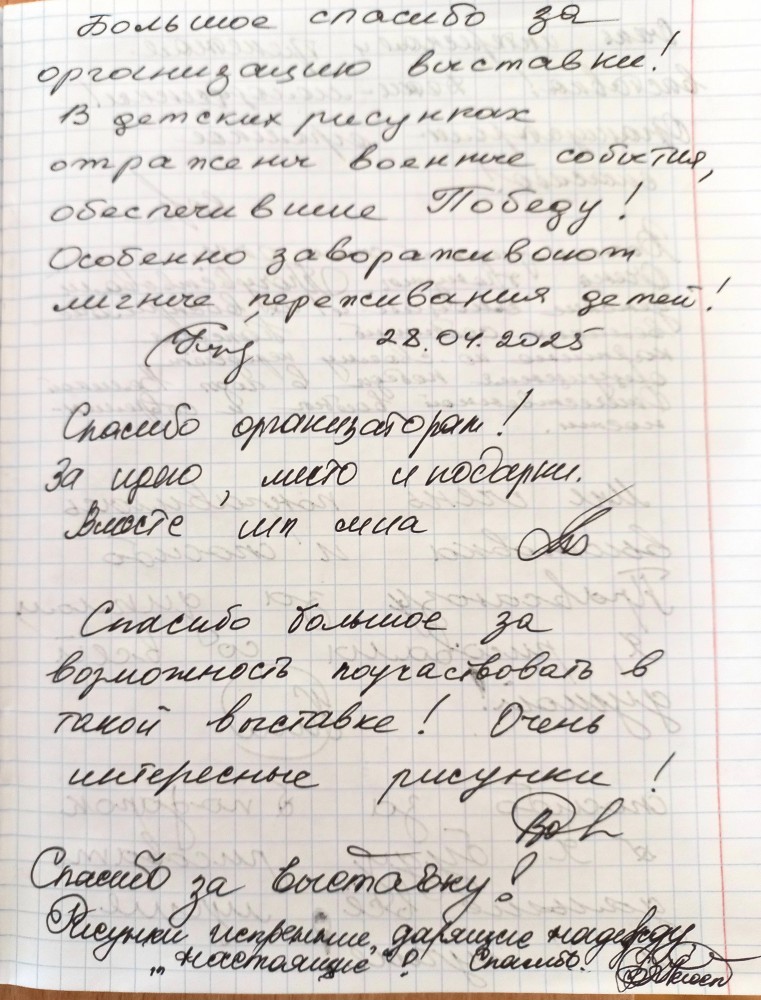 Большое спасибо за
организацию выставки!
В детских рисунках
отражены военные события,
обеспечившие Победу!
Особенно завораживают
личные переживания детей!
28.04.2025
Спасибо организаторам!
За идею, место и подарки.
Вместе мп
Спасибо большое за
возможность поучаствовать в
такой выставке! Очень
интересные рисунки!
Спасибо за выставку!
Рисунки искренние, дарящие надежду
„настоящие"! Спасибо.